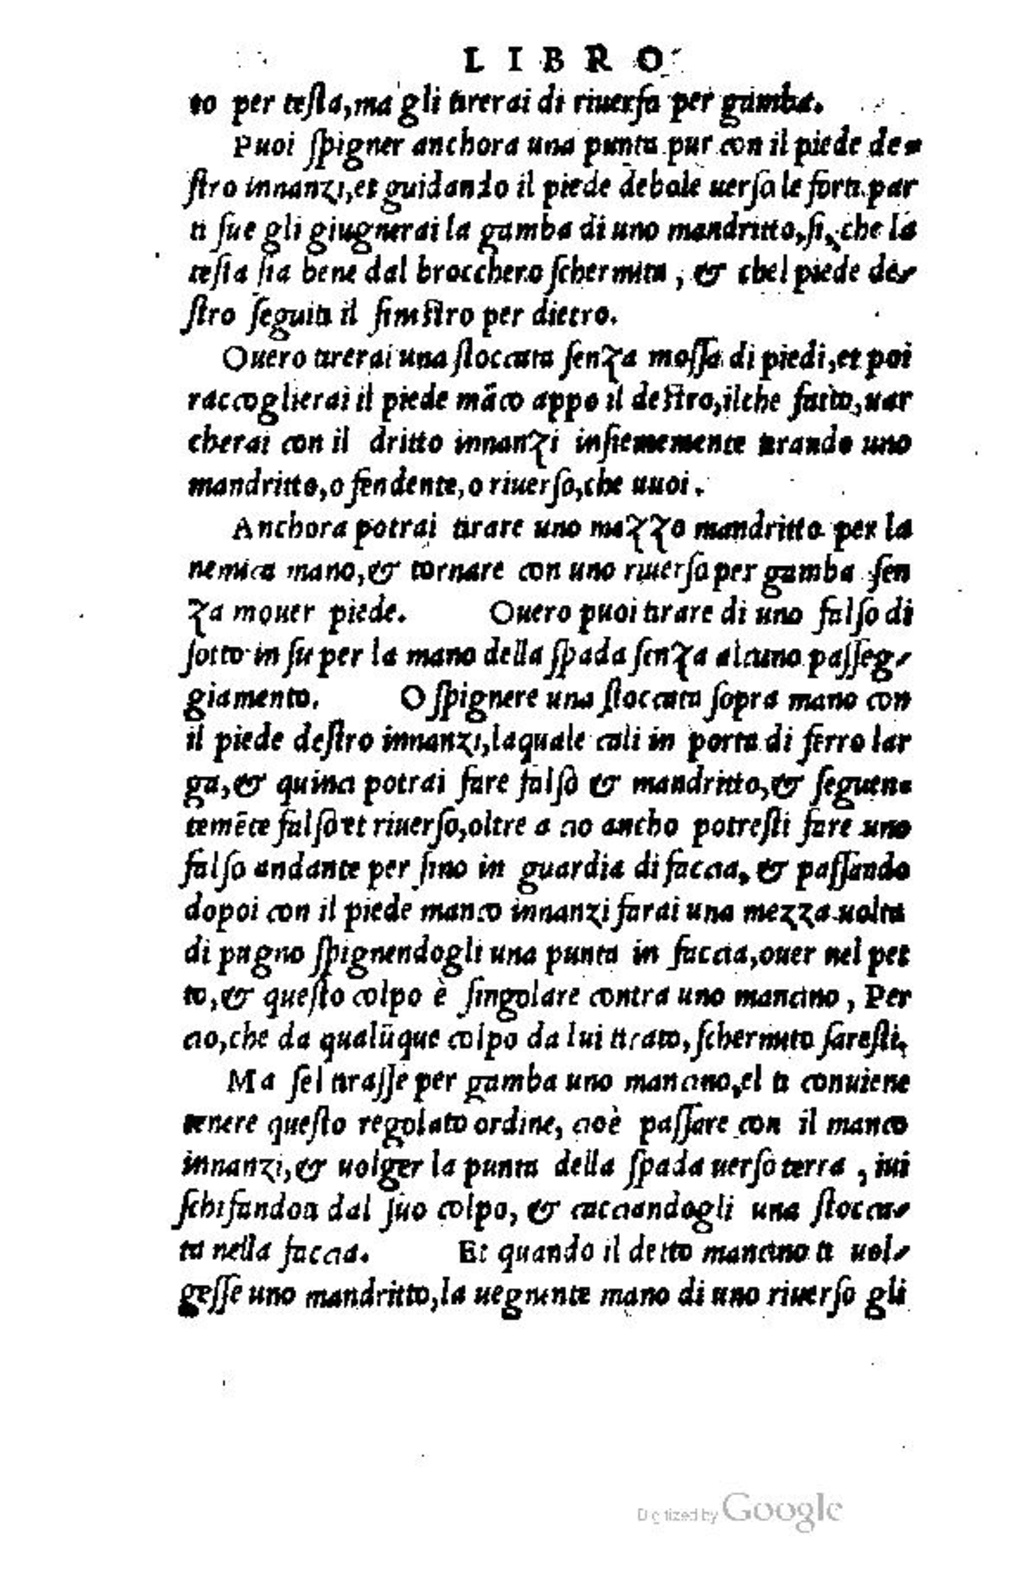 LIBRO
to per testa,ma gli tirerai di riuerso per gamba.
Puoi ſpigner anchora una punta pur con il piede de=
ſtro innanzi,et guidando il piede debole uerſo le forti par
ti ſue gli giugnerai la gamba di uno mandritto,ſi,che la
teſta ſia bene dal brocchero ſchermita, & chel piede de=
ſtro ſeguiti il ſiniſtro per dietro.
Ouero tirerai una ſtoccata ſenza moſſa di piedi,et poi
raccoglierai il piede mãco appo il deſtro,ilche fatto,uar
cherai con il dritto innanzi inſiememente tirando uno
mandritto,o fendente,o riuerſo,che uuoi.
Anchora potrai tirare uno mezzo mandritto per la
nemica mano,& tornare con uno riuerſo per gamba ſen
za mouer piede. Ouero puoi tirare di uno falſo di
ſotto in ſu per la mano della ſpada ſenza alcuno paſſeg=
giamento. O ſpignere una ſtoccata ſopra mano con
il piede deſtro innanzi,laquale cali in porta di ferro lar
ga,& quinci potrai fare falſo & mandritto,& ſeguen=
temẽte falſo et riuerſo,oltre a cio ancho potreſti fare uno
falſo andante per ſino in guardia di faccia, & paſſando
dopoi con il piede manco innanzi farai una mezza uolta
di pugno ſpignendogli una punta in faccia,ouer nel pet
to,& queſto colpo è ſingolare contra uno mancino, Per
cio,che da qualũque colpo da lui tirato,ſchermito ſareſti.
Ma ſel tiraſſe per gamba uno mancino,el ti conuiene
tenere queſto regolato ordine, cioè paſſare con il manco
innanzi,& uolger la punta della ſpada uerſo terra, iui
ſchifandoti dal ſuo colpo, & cacciandogli una ſtocca=
ta nella faccia. Et quando il detto mancino ti uol=
geſſe uno mandritto,la uegnente mano di uno riuerſo gli
Digitized by Google